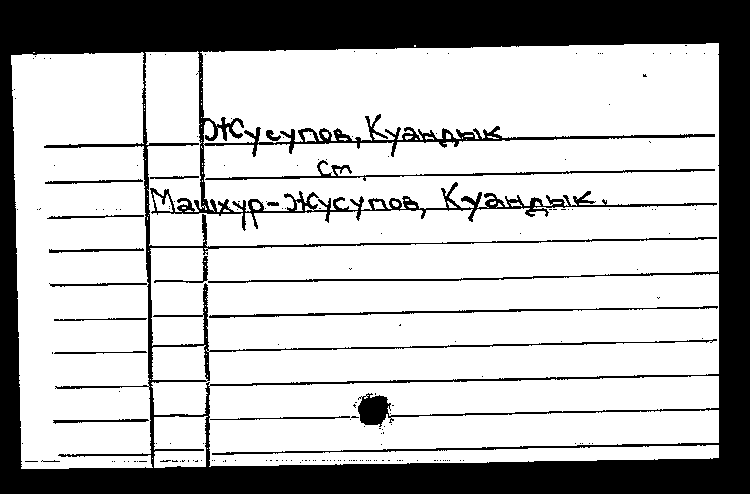 Жусупов, Куандык
см.
Машхур-Жусупов, Куандык.